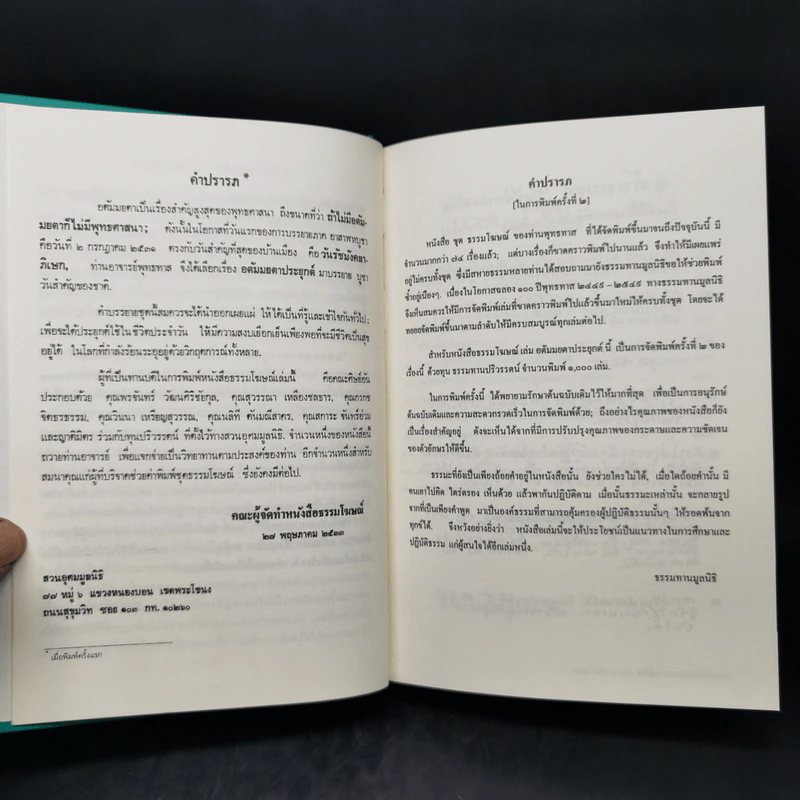 คำปรารภ *
อตัมมยตาเป็นเรื่องสำคัญสูงสุดของพุทธศาสนา ถึงขนาดที่ว่า ถ้าไม่มีอตัม-
มยตาก็ไม่มีพุทธศาสนา; ดังนั้นในโอกาสที่วันแรกของการบรรยายภาค อาสาฬหบูชา
คือวันที่ ๒ กรกฎาคม ๒๕๓๑ ตรงกับวันสำคัญที่สุดของบ้านเมือง คือวันรัชมังคลา-
ภิเษก, ท่านอาจารย์พุทธทาส จึงได้เลือกเรื่อง อตัมมยตาประยุกต์ มาบรรยาย บูชา
วันสำคัญของชาติ.
คำบรรยายชุดนี้สมควรจะได้นำออกเผยแผ่ ให้ได้เป็นที่รู้และเข้าใจกันทั่วไป;
เพื่อจะได้ประยุกต์ใช้ใน ชีวิตประจำวัน ให้มีความสงบเยือกเย็นเพียงพอที่จะมีชีวิตเป็นสุข
อยู่ได้ ในโลกที่กำลังร้อนระอุอยู่ด้วยวิกฤตการณ์ทั้งหลาย.
ผู้ที่เป็นทานบดีในการพิมพ์หนังสือธรรมโฆษณ์เล่มนี้ คือคณะศิษย์อัน
ประกอบด้วย คุณพรจันทร์ วัฒนศิริชัยกุล, คุณสุวรรณา เหลืองชลธาร, คุณภรกช
จิตธรธรรม, คุณวินนา เหรียญสุวรรณ, คุณนลิที ตันมณีสาคร, คุณสภาระ จันทร์อ่วม
และญาติมิตร ร่วมกับทุนปริวรรตน์ ที่ตั้งไว้ทางสวนอุศมมูลนิธิ. จำนวนหนึ่งของหนังสือนี้
ถวายท่านอาจารย์ เพื่อแจกจ่ายเป็นวิทยาทานตามประสงค์ของท่าน อีกจำนวนหนึ่งสำหรับ
สมนาคุณแก่ผู้ที่บริจาคช่วยค่าพิมพ์ชุดธรรมโฆษณ์ ซึ่งยังคงมีต่อไป.
คณะผู้จัดทำหนังสือธรรมโฆษณ์
๒๗ พฤษภาคม ๒๕๓๓
สวนอุศมมูลนิธิ
๗๗ หมู่ ๖ แขวงหนองบอน เขตพระโขนง
ถนนสุขุมวิท ซอย ๑๐๓ กท. ๑๐๒๖๐
* เมื่อพิมพ์ครั้งแรก
คำปรารภ
[ในการพิมพ์ครั้งที่ ๒]
หนังสือ ชุด ธรรมโฆษณ์ ของท่านพุทธทาส ที่ได้จัดพิมพ์ขึ้นมาจนถึงปัจจุบันนี้ มี
จำนวนมากกว่า ๗๔ เรื่องแล้ว; แต่บางเรื่องก็ขาดคราวพิมพ์ไปนานแล้ว จึงทำให้มีเผยแพร่
อยู่ไม่ครบทั้งชุด. ซึ่งมีสหายธรรมหลายท่านได้สอบถามมายังธรรมทานมูลนิธิขอให้ช่วยพิมพ์
ซ้ำอยู่เนืองๆ. เนื่องในโอกาสฉลอง ๑๐๐ ปีพุทธทาส ๒๔๔๙ - ๒๕๔๙ ทางธรรมทานมูลนิธิ
จึงเห็นสมควรให้มีการจัดพิมพ์เล่มที่ขาดคราวพิมพ์ไปแล้วขึ้นมาใหม่ให้ครบทั้งชุด โดยจะได้
ทยอยจัดพิมพ์ขึ้นมาตามลำดับให้มีครบสมบูรณ์ทุกเล่มต่อไป.
สำหรับหนังสือธรรมโฆษณ์ เล่ม อตัมมยตาประยุกต์ นี้ เป็นการจัดพิมพ์ครั้งที่ ๒ ของ
เรื่องนี้ ด้วยทุน ธรรมทานปริวรรตน์ จำนวนพิมพ์ ๑,๐๐๐ เล่ม.
ในการพิมพ์ครั้งนี้ ได้พยายามรักษาต้นฉบับเดิมไว้ให้มากที่สุด เพื่อเป็นการอนุรักษ์
ต้นฉบับเดิมและความสะดวกรวดเร็วในการจัดพิมพ์ด้วย; ถึงอย่างไรคุณภาพของหนังสือก็ยัง
เป็นเรื่องสำคัญอยู่ ดังจะเห็นได้จากที่มีการปรับปรุงคุณภาพของกระดาษและความชัดเจน
ของตัวอักษรให้ดีขึ้น.
ธรรมะที่ยังเป็นเพียงถ้อยคำอยู่ในหนังสือนั้น ยังช่วยใครไม่ได้, เมื่อใดถ้อยคำนั้น มี
คนเอาไปคิด ใคร่ครอง เห็นด้วย แล้วพากันปฏิบัติตาม เมื่อนั้นธรรมะเหล่านั้น จะกลายรูป
จากที่เป็นเพียงคำพูด มาเป็นองค์ธรรมที่สามารถคุ้มครองผู้ปฏิบัติธรรมนั้นๆ ให้รอดพ้นจาก
ทุกข์ได้. จึงหวังอย่างยิ่งว่า หนังสือเล่มนี้จะให้ประโยชน์เป็นแนวทางในการศึกษาและ
ปฏิบัติธรรม แก่ผู้สนใจได้อีกเล่มหนึ่ง.
ธรรมทานมูลนิธิ